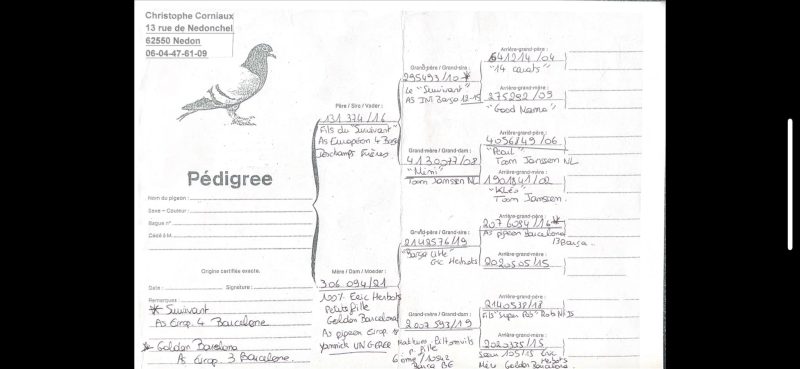 Christophe Corniaux
13 rue de Nedonchel
62550 Nedon
06-04-47-61-09
Pédigree
Nom du pigeon :
Sexe - Couleur :
Bague n° :
Cédé à M.
Origine certifiée exacte.
Date : Signature :
Remarques
* Survivant
As Europ. 4 Barcelone
* Golden Barcelona
As Europ. 3 Barcelone.
Père / Sire / Vader :
131 374/16
Fils du "Survivant"
As Européen 4 Barça
Deschamps Frères
Mère / Dam / Moeder :
306 094/21
100% Eric Herbots
Petite fille
Golden Barcelona
As pigeon Europ.
Yannick UNGERER
Grand-père / Grand-sire :
295493/10 *
Le "Survivant"
AS INT Barça 12-15
Grand-mère / Grand-dam :
4130077/08
"Mimi"
Tom Janssen NL
Grand-père / Grand-sire :
2148576/19
"Barça Little"
Eric Herbots
Grand-mère / Grand-dam :
2007 593/19
p. fille
Barça BE
Arrière-grand-père :
641214/04
"14 carats"
Arrière-grand-mère :
275292/09
"Good Mama"
Arrière-grand-père :
4056849/06
"Paul"
Tom Janssen NL
Arrière-grand-mère :
1901841/02
"Kléo"
Tom Janssen.
Arrière-grand-père :
2076084/16 *
As pigeon Barcelona
Arrière-grand-mère :
2020505/15
Arrière-grand-père :
2140538/18
Fils "Super Rob"
Arrière-grand-mère :
2020335/15
Herbots
Mère Golden Barcelona